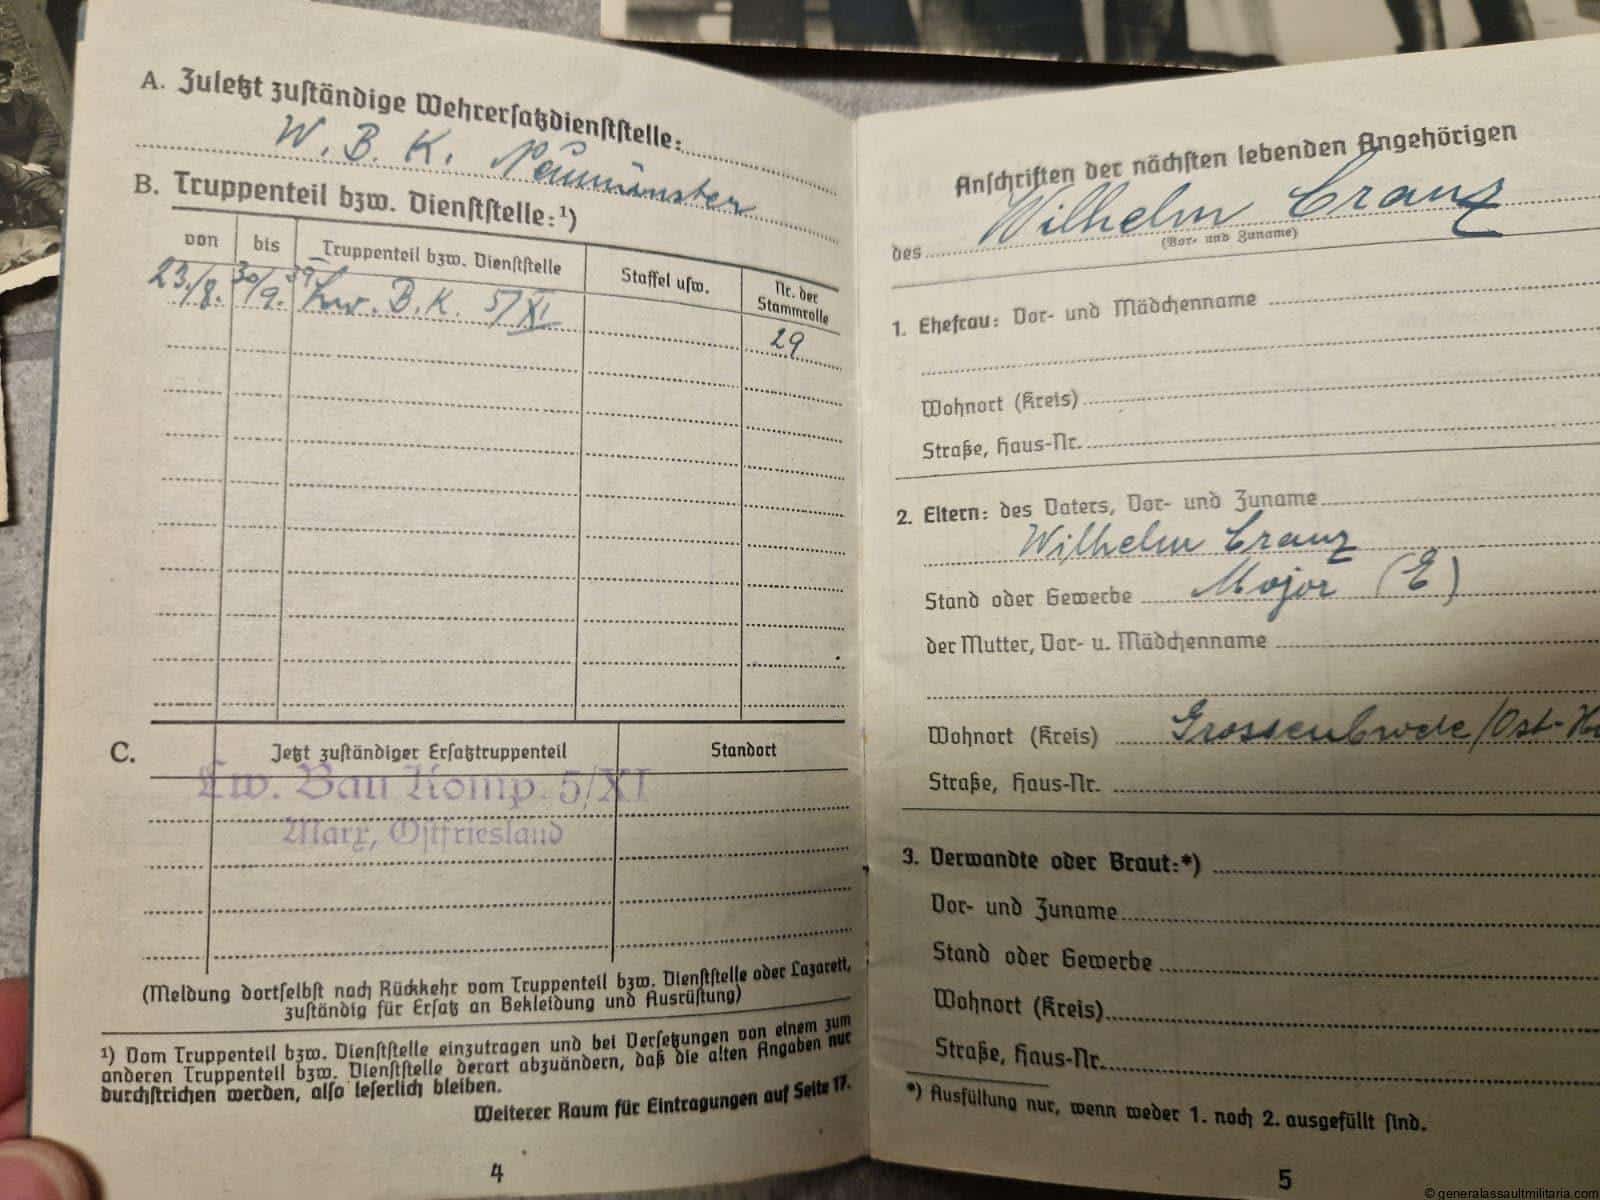 A. Zuletzt zuständige Wehrersatzdienststelle:
W. B. K. Neumünster
B. Truppenteil bzw. Dienststelle:¹)
von bis Truppenteil bzw. Dienststelle Staffel usw. Nr. der Stammrolle
23./8. 30/9. 39 Lw. B.K. 5/XI 29
C. Jetzt zuständiger Ersatztruppenteil Standort
Lw. Bau Komp. 5/XI
Marx, Ostfriesland
(Meldung dortselbst nach Rückkehr vom Truppenteil bzw. Dienststelle oder Lazarett,
zuständig für Ersatz an Bekleidung und Ausrüstung)
¹) Vom Truppenteil bzw. Dienststelle einzutragen und bei Versetzungen von einem zum
anderen Truppenteil bzw. Dienststelle derart abzuändern, daß die alten Angaben nur
durchstrichen werden, also leserlich bleiben.
Weiterer Raum für Eintragungen auf Seite 17.
4
Anschriften der nächsten lebenden Angehörigen
des Wilhelm Cranz
(Vor- und Zuname)
1. Ehefrau: Vor- und Mädchenname
Wohnort (Kreis)
Straße, Haus-Nr.
2. Eltern: des Vaters, Vor- und Zuname
Wilhelm Cranz
Stand oder Gewerbe Major (E)
der Mutter, Vor- u. Mädchenname
Wohnort (Kreis) /Ost-
Straße, Haus-Nr.
3. Verwandte oder Braut:*)
Vor- und Zuname
Stand oder Gewerbe
Wohnort (Kreis)
Straße, Haus-Nr.
*) Ausfüllung nur, wenn weder 1. noch 2. ausgefüllt sind.
5
© generalassaultmilitaria.com